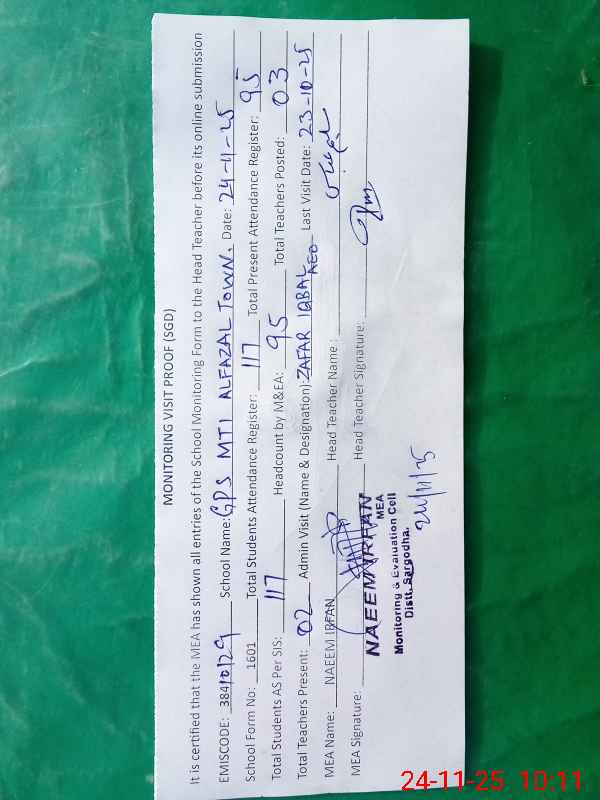 MONITORING VISIT PROOF (SGD)
It is certified that the MEA has shown all entries of the School Monitoring Form to the Head Teacher before its online submission
EMISCODE: 38410129 School Name: GPS MTI ALFAZAL TOWN. Date: 24-11-25
School Form No: 1601 Total Students Attendance Register: 117 Total Present Attendance Register: 95
Total Students AS Per SIS: 117 Headcount by M&EA: 95 Total Teachers Posted: 03
Total Teachers Present: 02 Admin Visit (Name & Designation): ZAFAR IQBAL AEO Last Visit Date: 23-10-25
MEA Name: NAEEM IRFAN Head Teacher Name :
MEA Signature: Head Teacher Signature:
NAEEM IRFAN
MEA
Monitoring & Evaluation Cell
Distt. Sargodha.
24/11/25
24-11-25 10:11